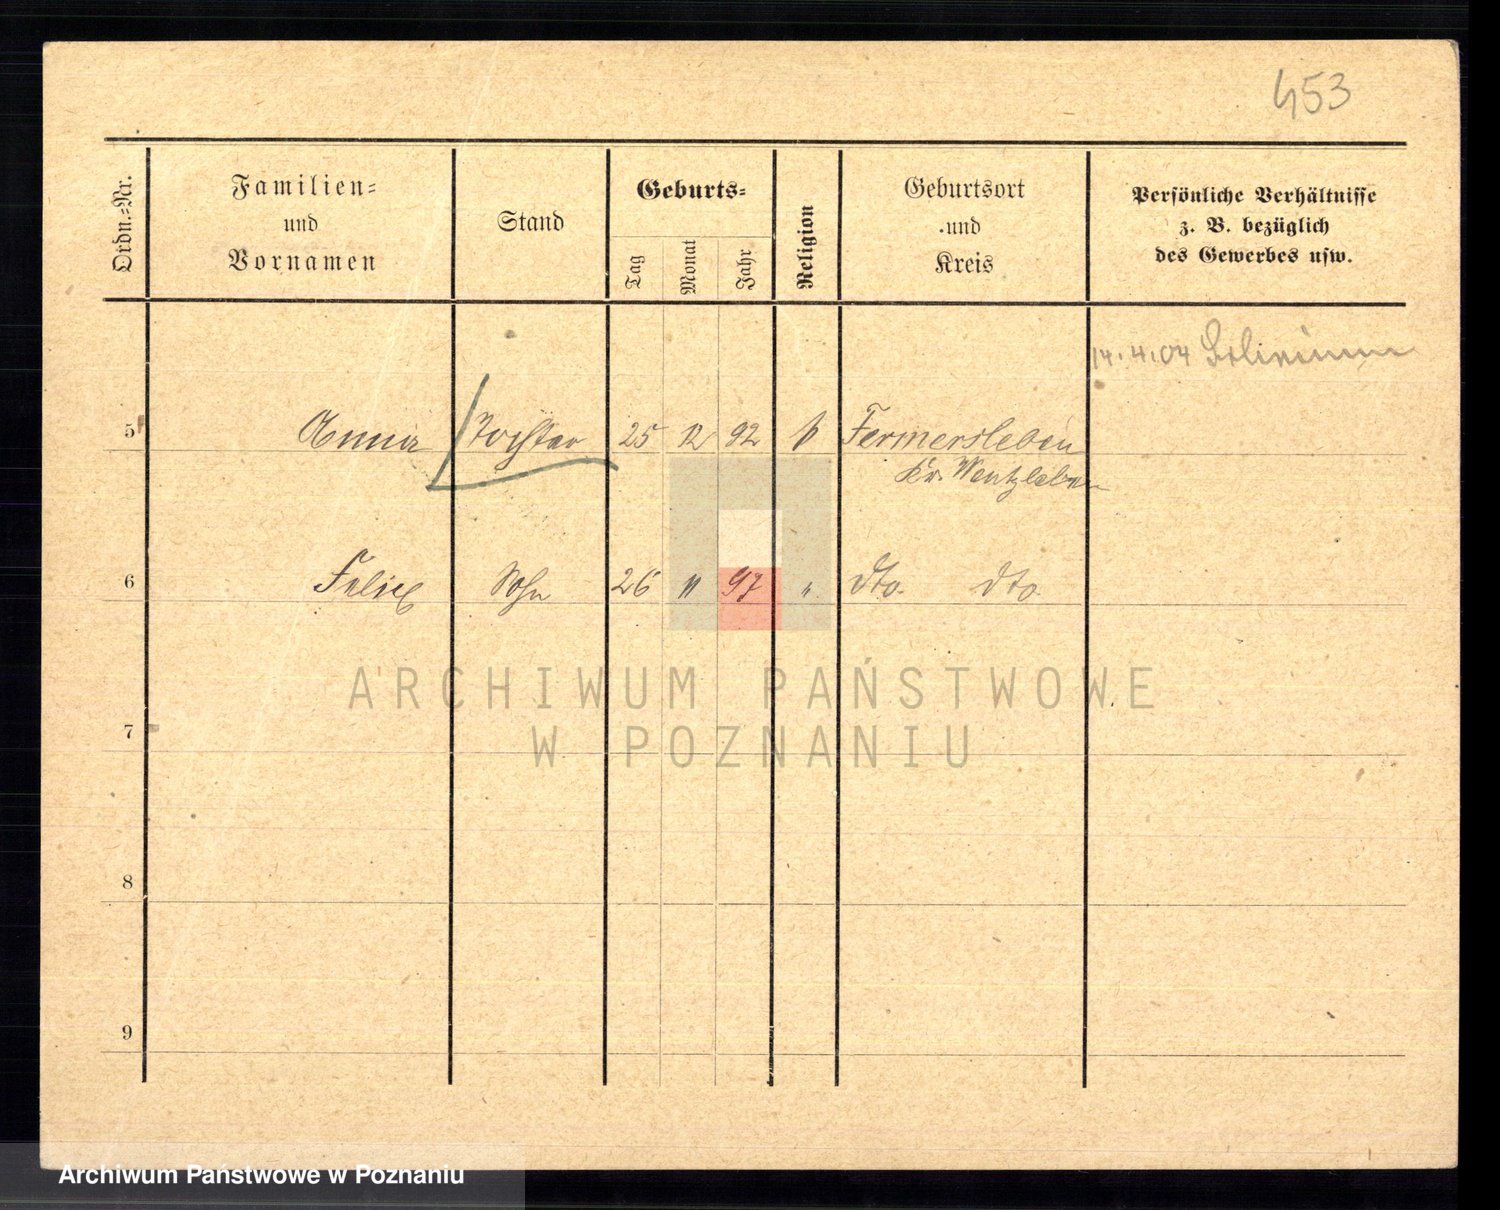 453
Ordn.-Nr.
Familien-
und
Vornamen
Stand
Geburts-
Tag
Monat
Jahr
Religion
Geburtsort
und
Kreis
Persönliche Verhältnisse
z. B. bezüglich
des Gewerbes usw.
14.4.04
5 Anna Tochter 25 12 92 Fermersleben
Kr. Wantzleben
6 Felix Sohn 26 11 97 " dto. dto.
ARCHIWUM PAŃSTWOWE
W POZNANIU
7
8
9
Archiwum Państwowe w Poznaniu